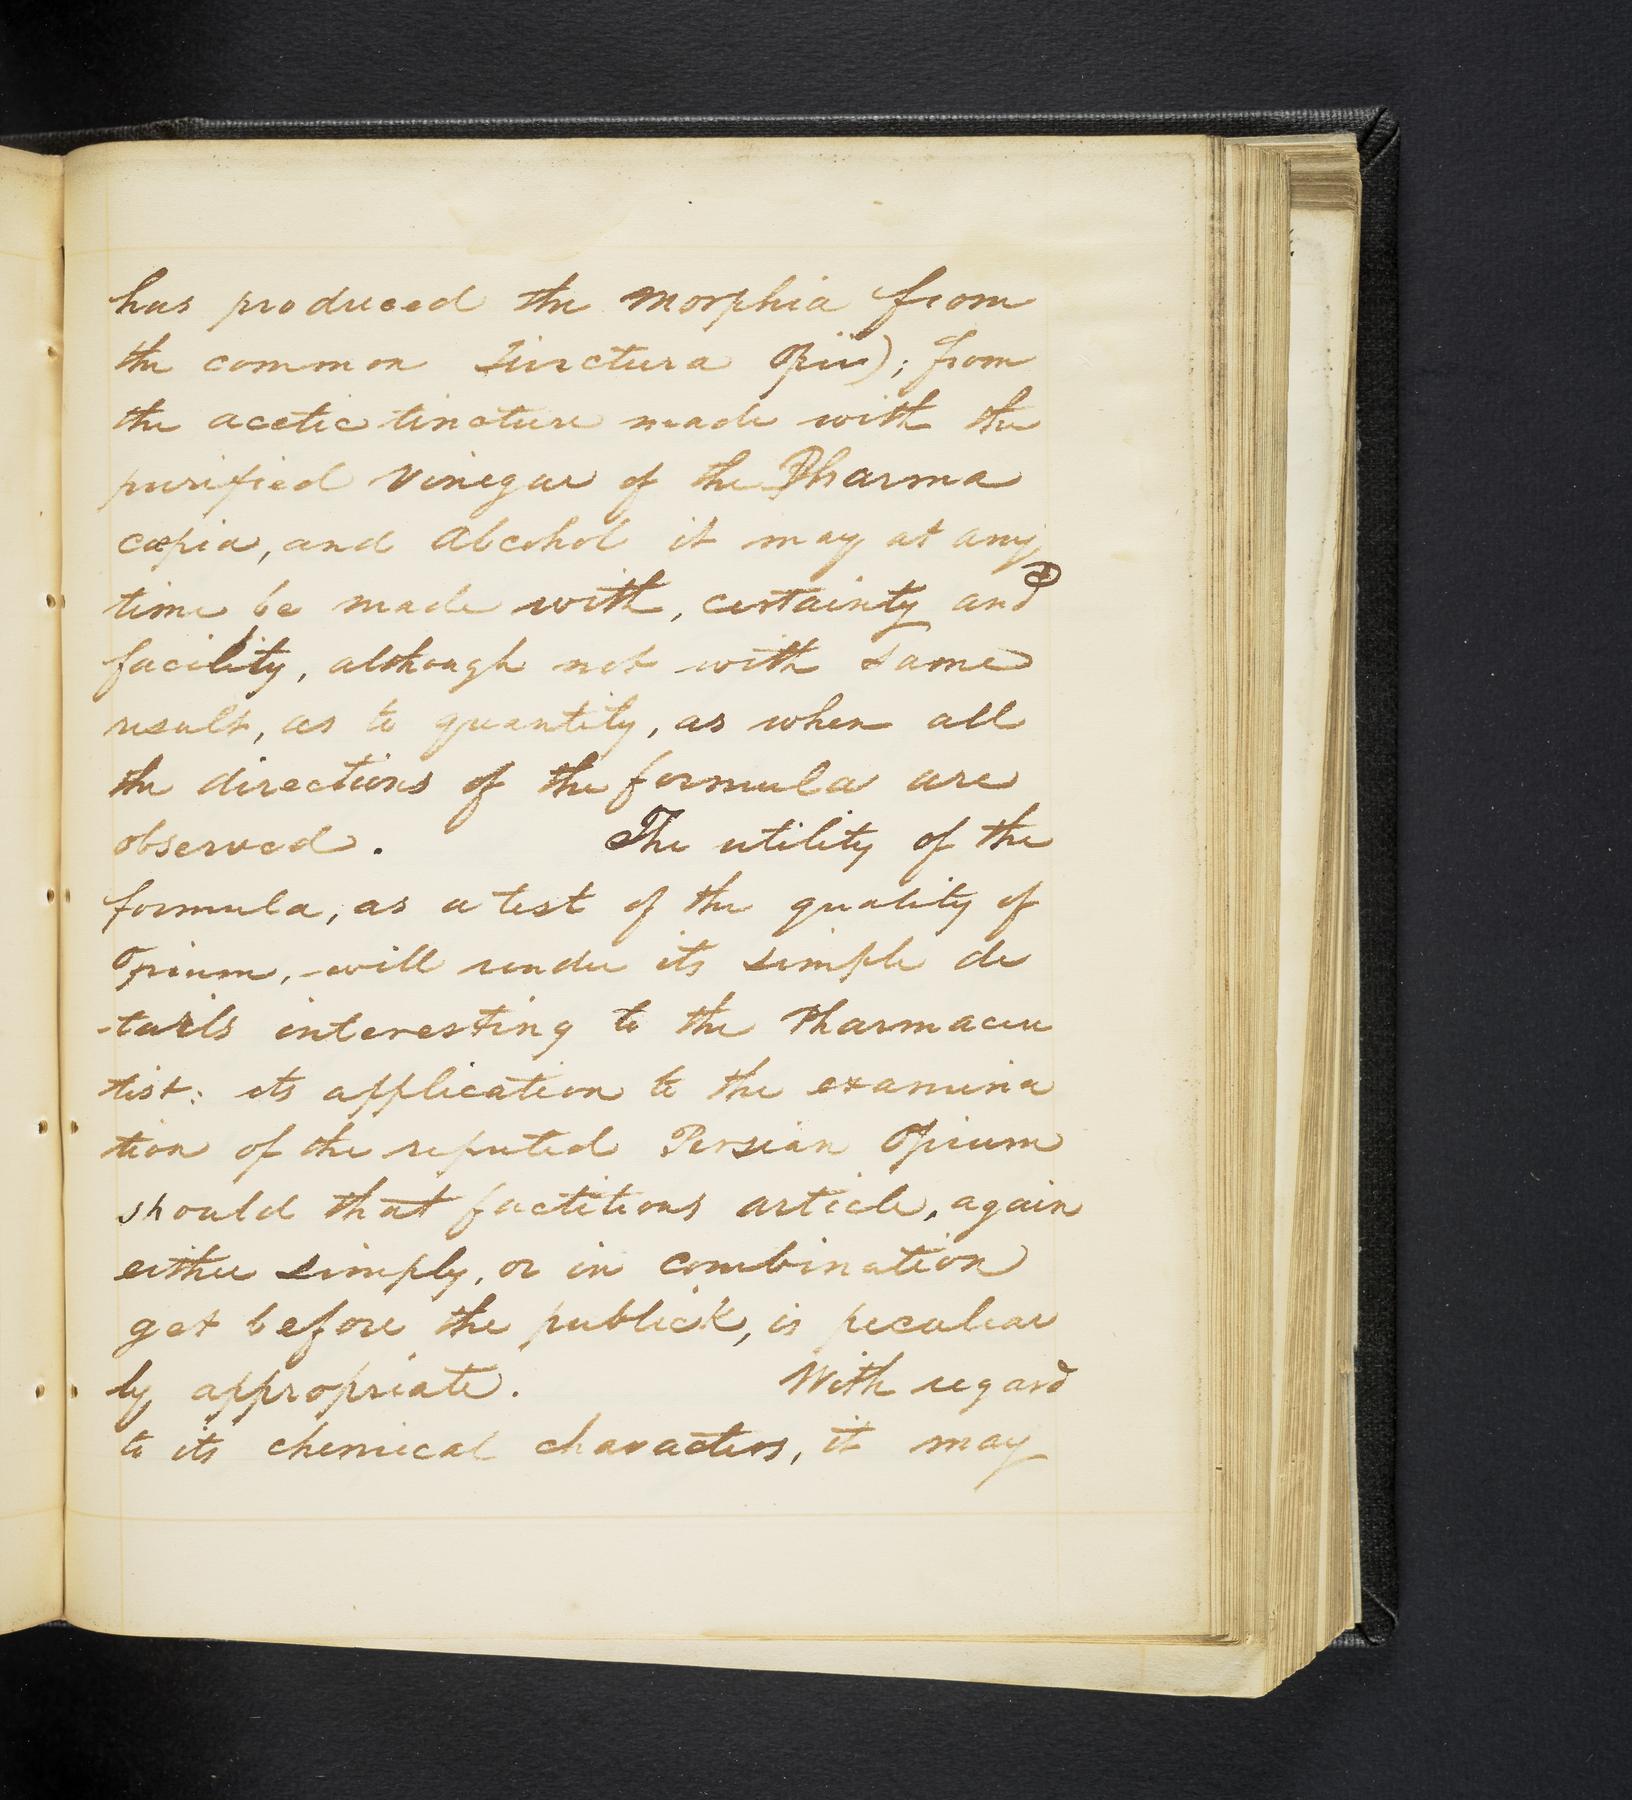 has produced the Morphia from
the common Tinctura Opii); from
the acetic tincture made with the
purified Vinegar of the Pharma
cœpia, and Alcohol it may at any
time be made with, certainty and
facility, although not with same
result, as to quantity, as when all
the directions of the formula are
observed. The utility of the
formula, as a test of the quality of
Opium, will render its simple de
-tails interesting to the Pharmaceu
tist: its application to the examina
tion of the reputed Persian Opium
should that factitious article, again
either simply, or in combination
get before the publick, is peculiar
ly appropriate. With regard
to its chemical characters, it may